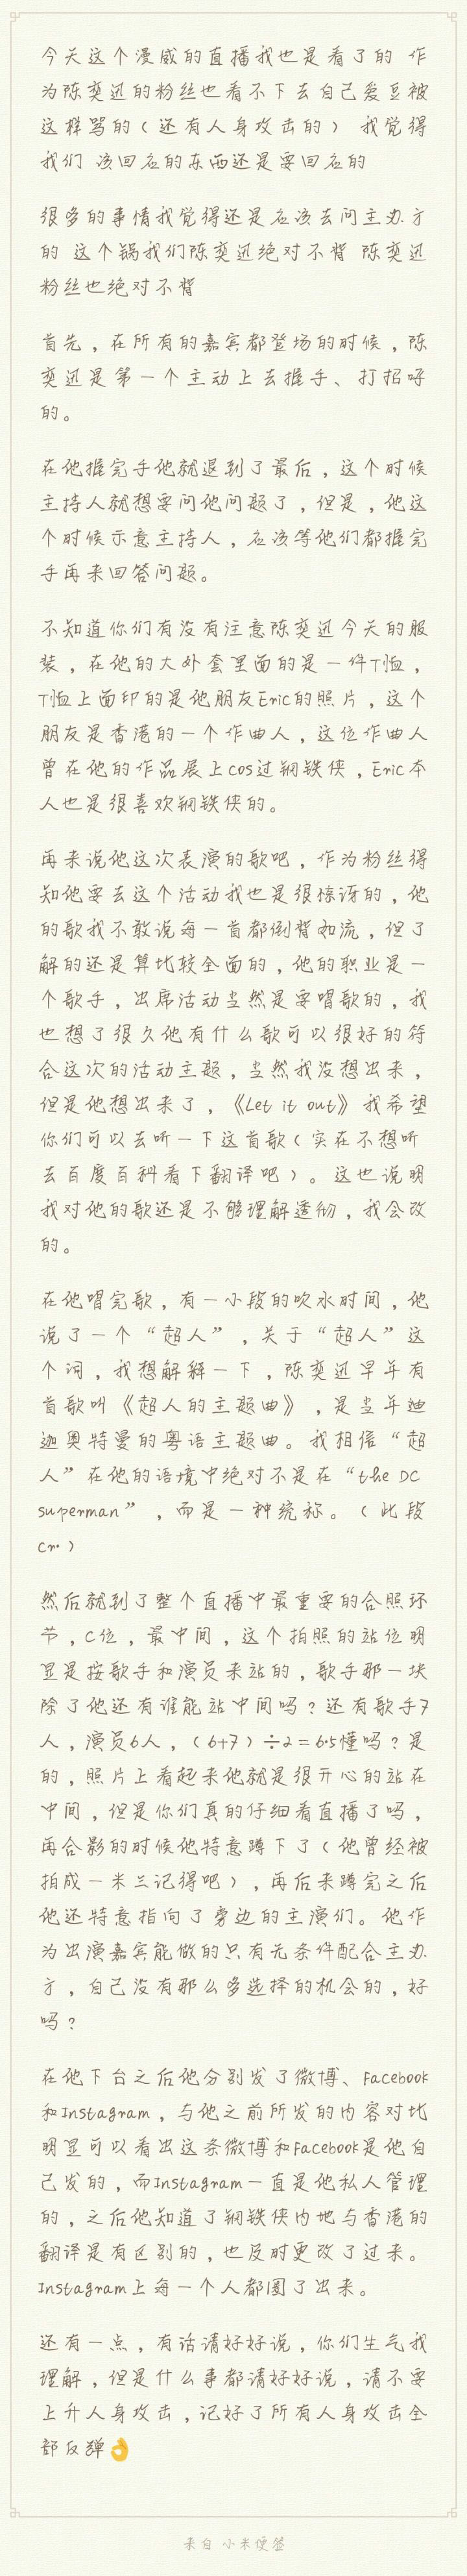 今天这个漫威的直播我也是看了的 作
为陈奕迅的粉丝也看不下去自己爱豆被
这样骂的（还有人身攻击的） 我觉得
我们 该回应的东西还是要回应的
很多的事情我觉得还是应该去问主办方
的 这个锅我们陈奕迅绝对不背 陈奕迅
粉丝也绝对不背
首先，在所有的嘉宾都登场的时候，陈
奕迅是第一个主动上去握手、打招呼
的。
在他握完手他就退到了最后，这个时候
主持人就想要问他问题了，但是，他这
个时候示意主持人，应该等他们都握完
手再来回答问题。
不知道你们有没有注意陈奕迅今天的服
装，在他的大外套里面的是一件T恤，
T恤上面印的是他朋友Eric的照片，这个
朋友是香港的一个作曲人，这位作曲人
曾在他的作品展上cos过钢铁侠，Eric本
人也是很喜欢钢铁侠的。
再来说他这次表演的歌吧，作为粉丝得
知他要去这个活动我也是很惊讶的，他
的歌我不敢说每一首都倒背如流，但了
解的还是算比较全面的，他的职业是一
个歌手，出席活动当然是要唱歌的，我
也想了很久他有什么歌可以很好的符
合这次的活动主题，当然我没想出来，
但是他想出来了，《Let it out》我希望
你们可以去听一下这首歌（实在不想听
去百度百科看下翻译吧）。这也说明
我对他的歌还是不够理解透彻，我会改
的。
在他唱完歌，有一小段的吹水时间，他
说了一个“超人”，关于“超人”这
个词，我想解释一下，陈奕迅早年有
首歌叫《超人的主题曲》，是当年迪
迦奥特曼的粤语主题曲。我相信“超
人”在他的语境中绝对不是在“the DC
superman”，而是一种统称。（此段
cr.）
然后就到了整个直播中最重要的合照环
节，C位，最中间，这个拍照的站位明
显是按歌手和演员来站的，歌手那一块
除了他还有谁能站中间吗？还有歌手7
人，演员6人，（6+7）÷2=6.5懂吗？是
的，照片上看起来他就是很开心的站在
中间，但是你们真的仔细看直播了吗，
再合影的时候他特意蹲下了（他曾经被
拍成一米三记得吧），再后来蹲完之后
他还特意指向了旁边的主演们。他作
为出演嘉宾能做的只有无条件配合主办
方，自己没有那么多选择的机会的，好
吗？
在他下台之后他分别发了微博、Facebook
和Instagram，与他之前所发的内容对比
明显可以看出这条微博和Facebook是他自
己发的，而Instagram一直是他私人管理
的，之后他知道了钢铁侠内地与香港的
翻译是有区别的，也及时更改了过来。
Instagram上每一个人都圈了出来。
还有一点，有话请好好说，你们生气我
理解，但是什么事都请好好说，请不要
上升人身攻击，记好了所有人身攻击全
部反弹👌
来自 小米便签